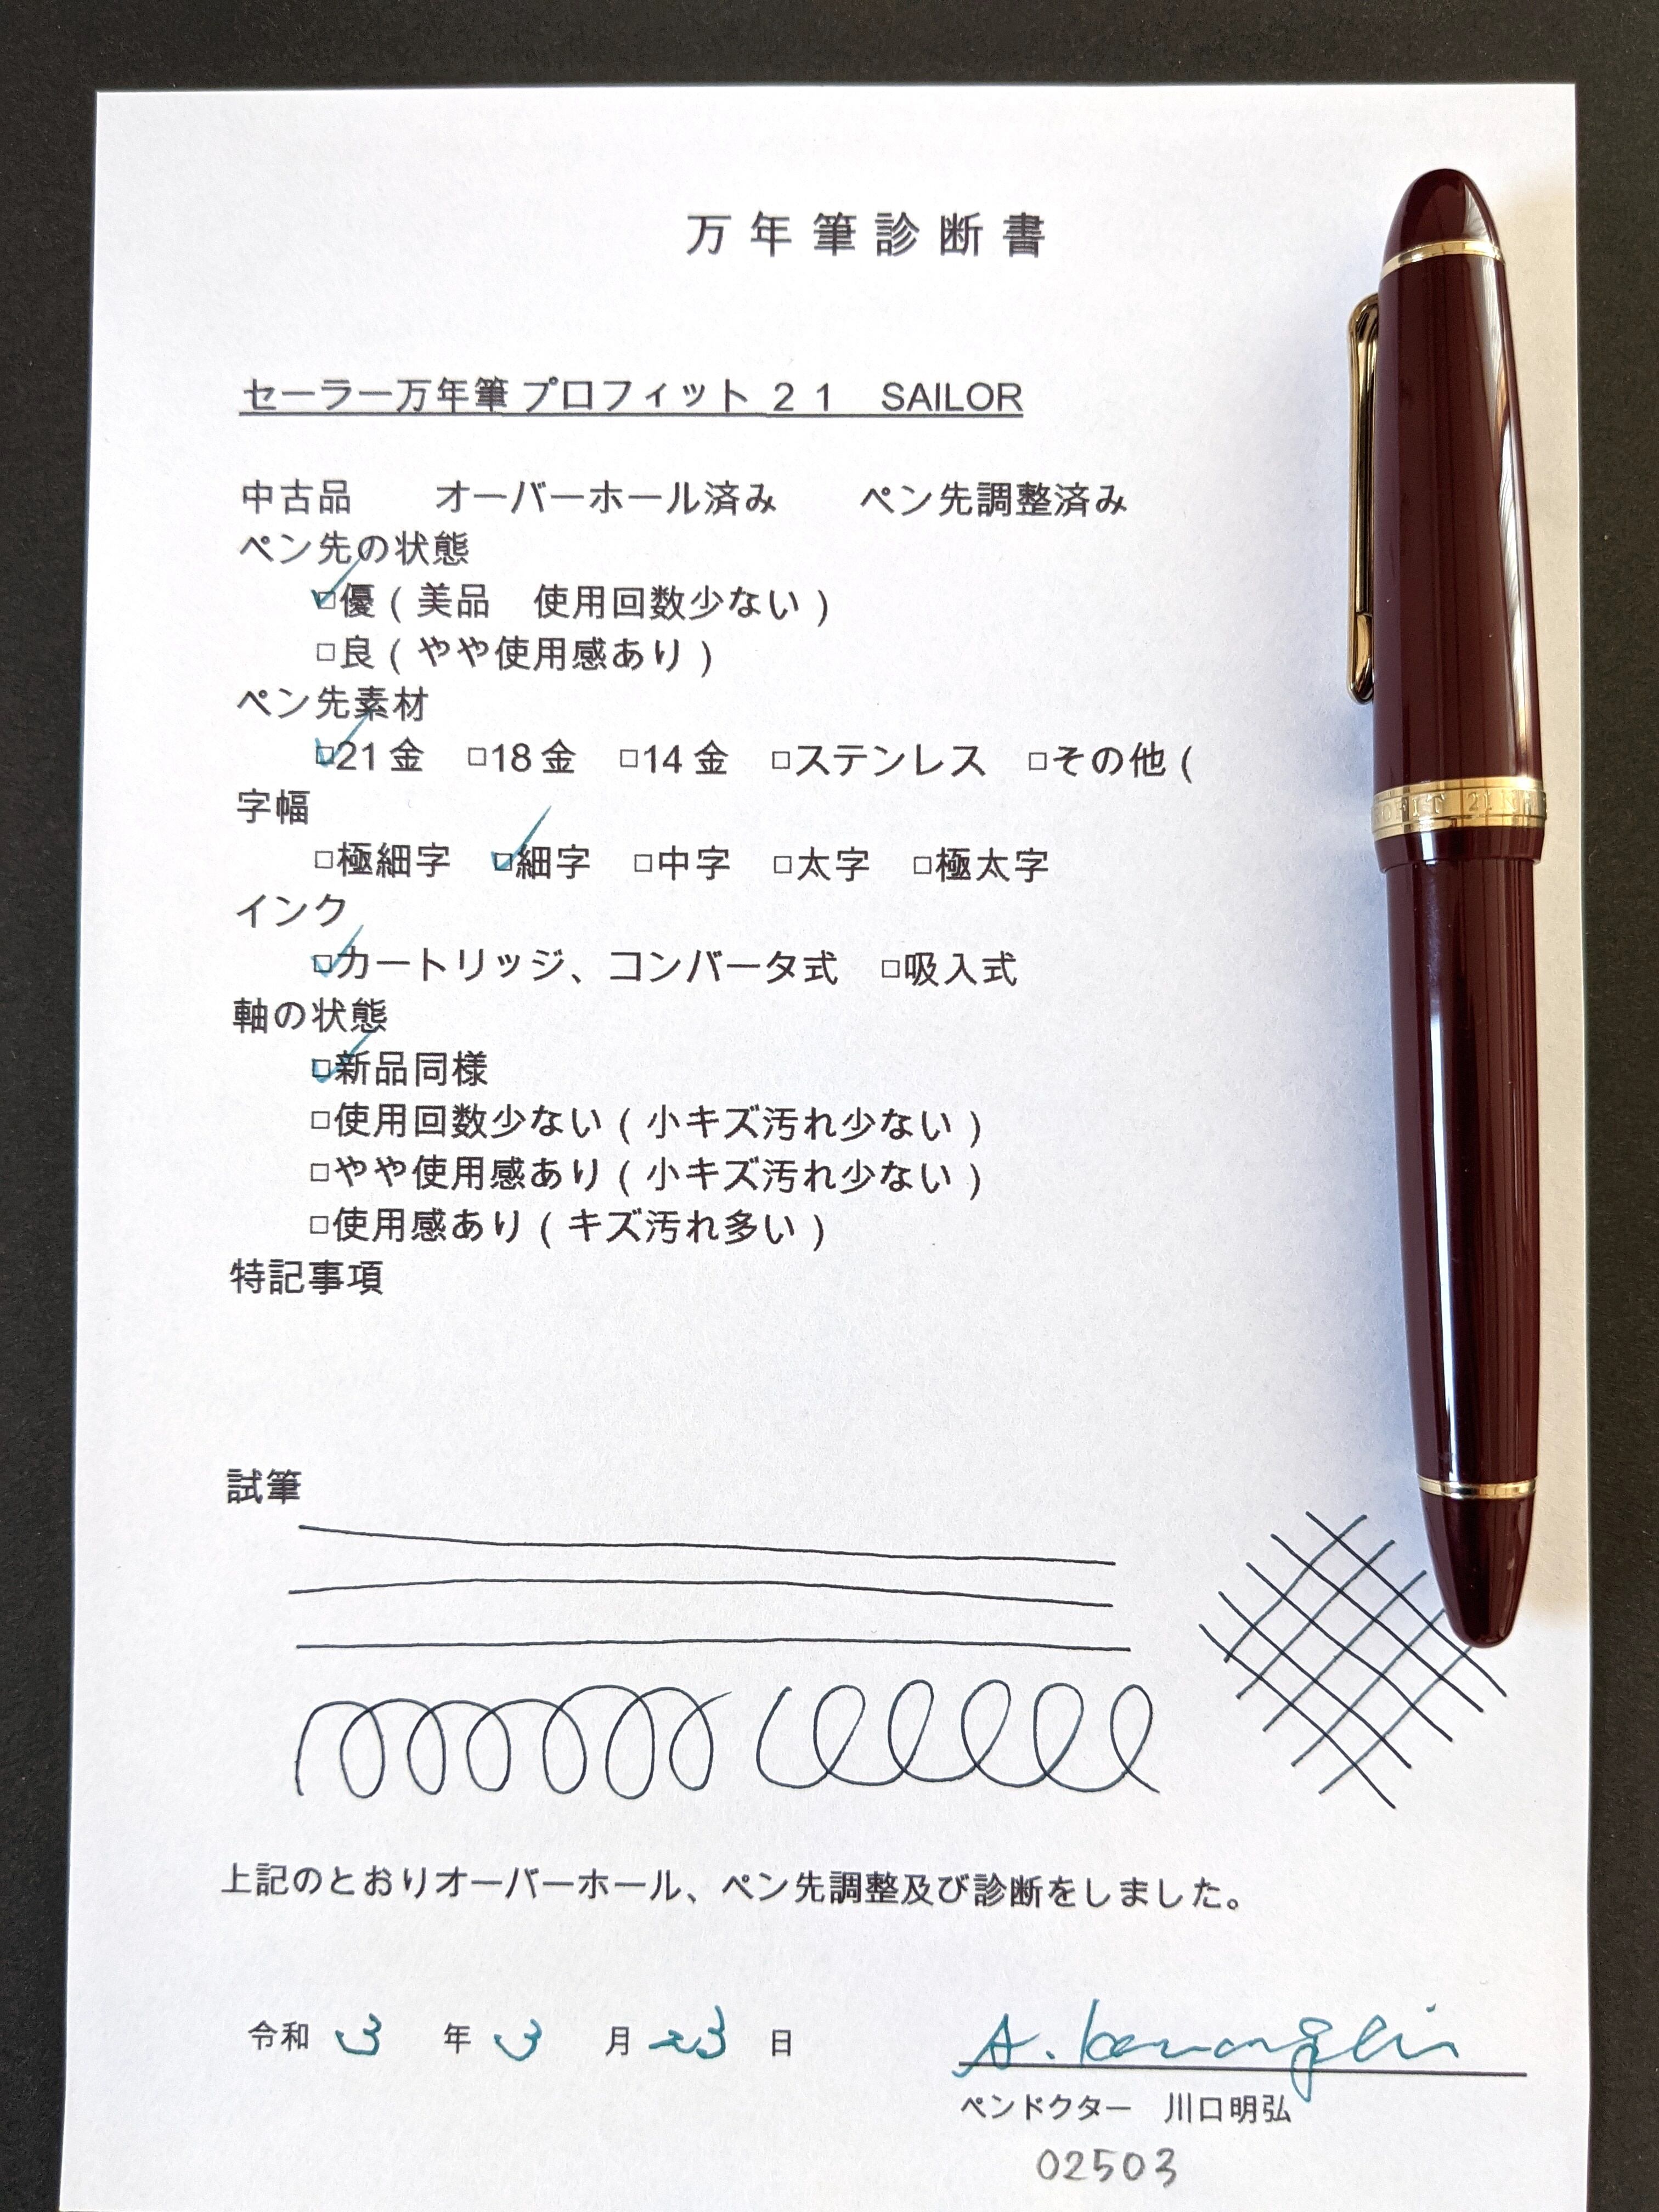 万年筆診断書
セーラー万年筆 プロフィット 21 SAILOR
中古品 オーバーホール済み ペン先調整済み
ペン先の状態
☑優(美品 使用回数少ない)
□良(やや使用感あり)
ペン先素材
☑21金 □18金 □14金 □ステンレス □その他(
字幅
□極細字 ☑細字 □中字 □太字 □極太字
インク
☑カートリッジ、コンバータ式 □吸入式
軸の状態
☑新品同様
□使用回数少ない(小キズ汚れ少ない)
□やや使用感あり(小キズ汚れ少ない)
□使用感あり(キズ汚れ多い)
特記事項
試筆
上記のとおりオーバーホール、ペン先調整及び診断をしました。
令和 3 年 3 月 23 日
ペンドクター 川口明弘
02503